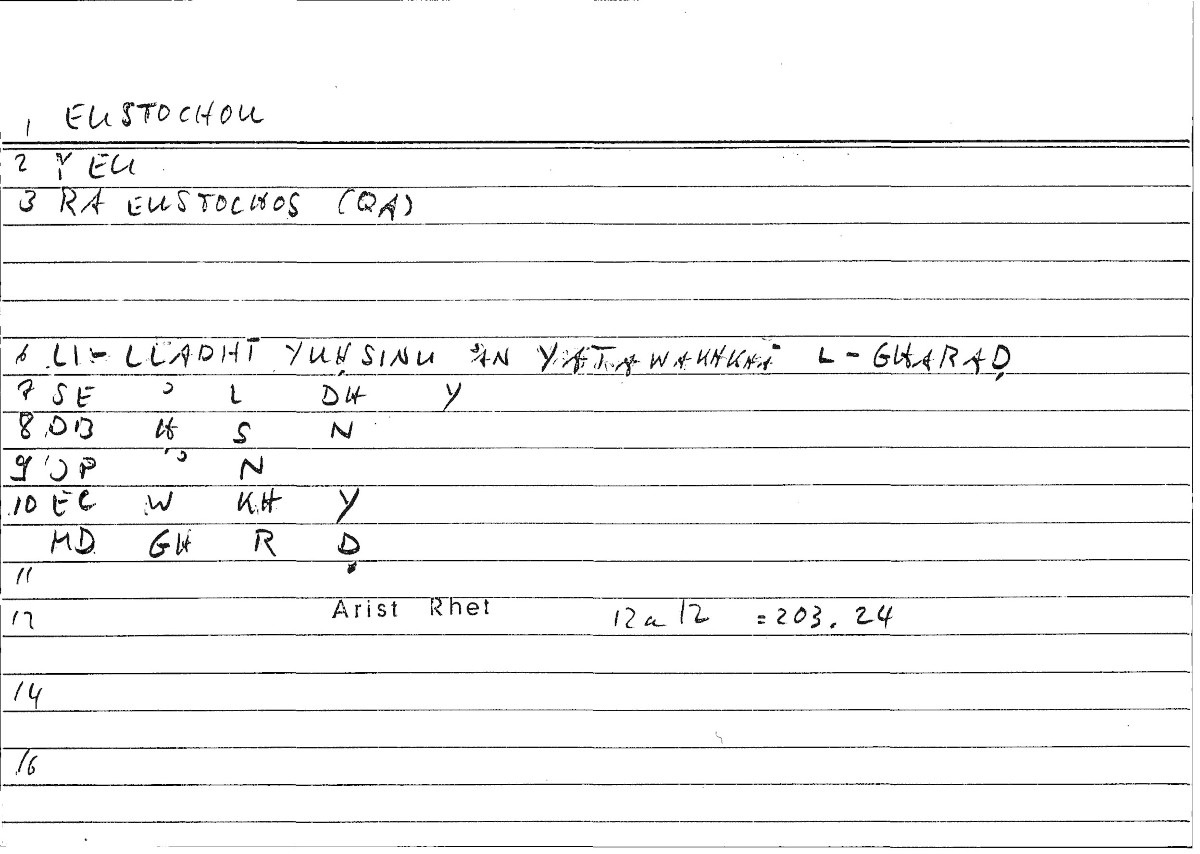 1 EUSTOCHOU
2 Y EU
3 RA EUSTOCHOS (QA)
6 LI-LLADHĪ YUḤSINU ʾAN YATAWAKHKHĀ L-GHARAḌ
7 SE ʾ L DH Y
8 DB Ḥ S N
9 OP ʾ N
10 EC W KH Y
MD GH R Ḍ
11
12 Arist Rhet 12a12 = 203.24
14
16